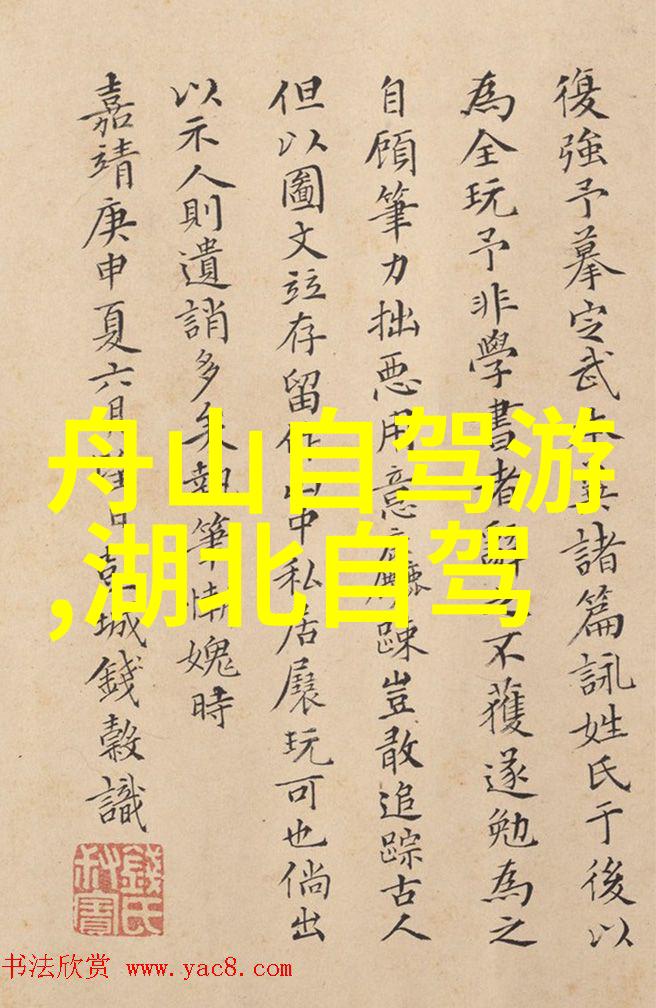 復強予摹定武諸篇詠姓氏于後以
為全玩予非學書者不獲遂勉為之
自顧筆力拙惡用意踈豈敢追踪古人
但以圖文竝存留中私居展玩可也倘出
以示人則遺誚多矣執筆媿時
嘉靖庚申夏六月城錢榖識
錢氏叔寶
舟山自驾游
,湖北自驾
书法欣赏 www.yac8.com